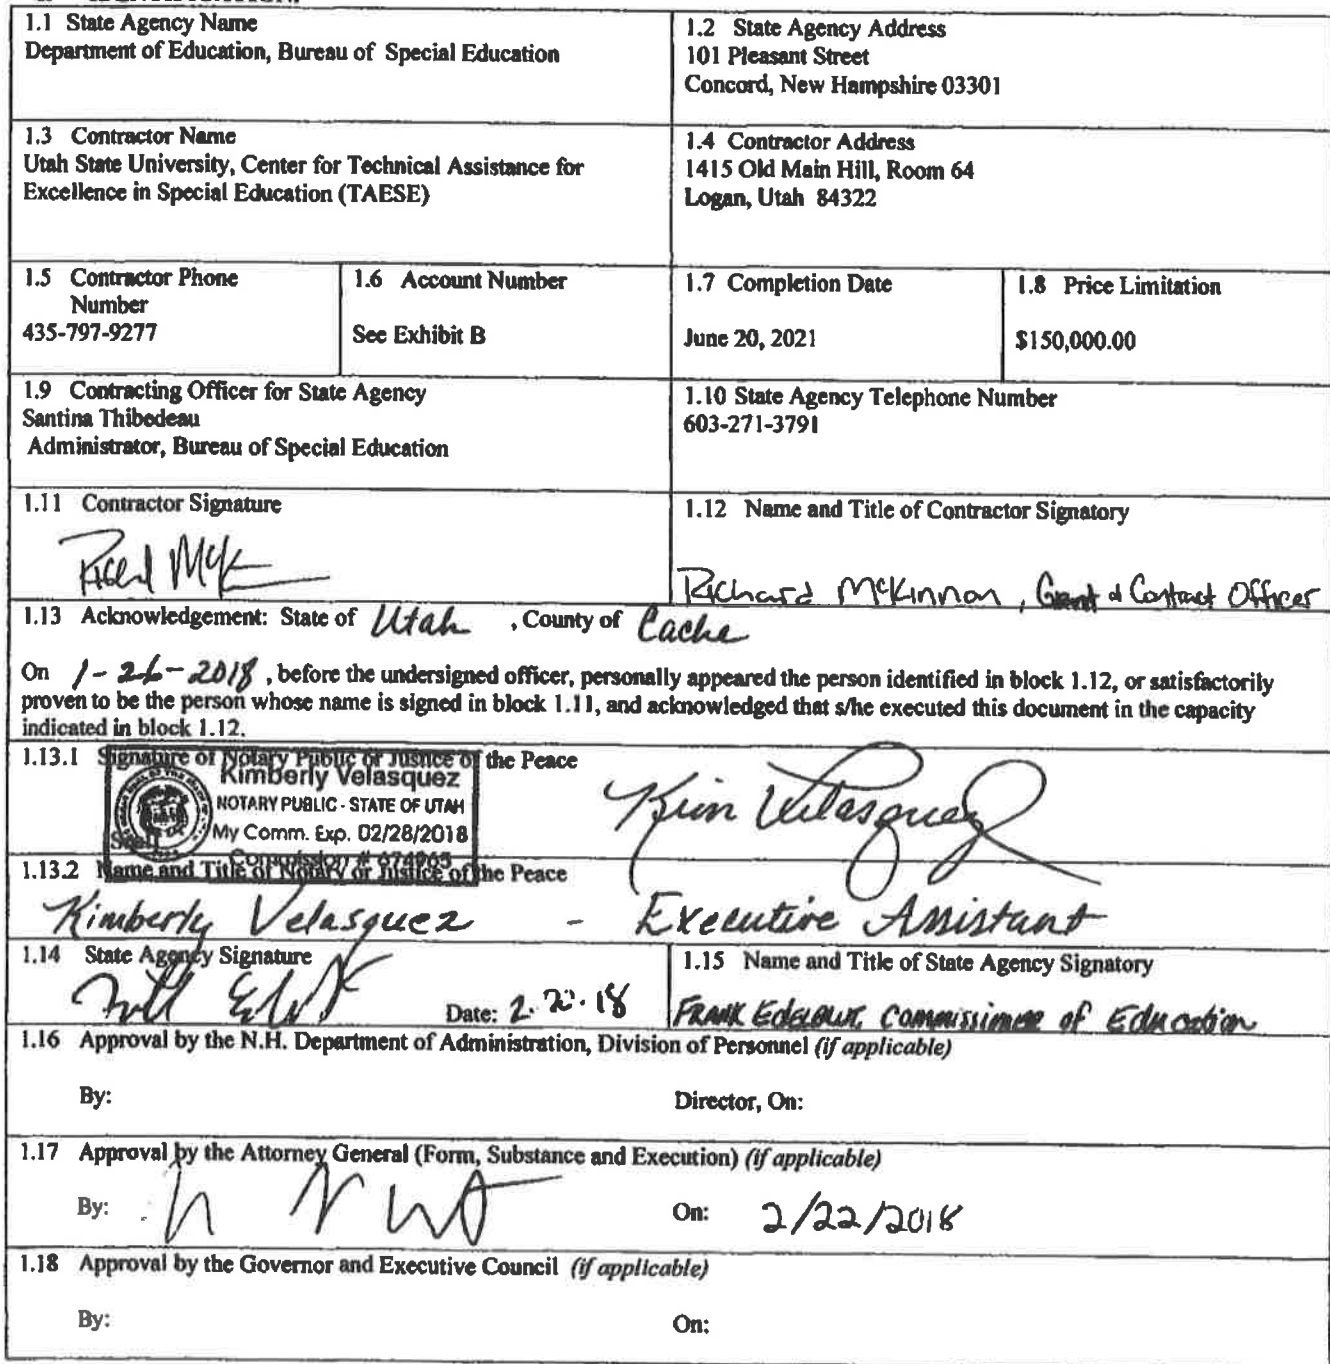 1.1 State Agency Name
Department of Education, Bureau of Special Education
1.2 State Agency Address
101 Pleasant Street
Concord, New Hampshire 03301
1.3 Contractor Name
Utah State University, Center for Technical Assistance for
Excellence in Special Education (TAESE)
1.4 Contractor Address
1415 Old Main Hill, Room 64
Logan, Utah 84322
1.5 Contractor Phone
Number
435-797-9277
1.6 Account Number
See Exhibit B
1.7 Completion Date
June 20, 2021
1.8 Price Limitation
$150,000.00
1.9 Contracting Officer for State Agency
Santina Thibedeau
Administrator, Bureau of Special Education
1.10 State Agency Telephone Number
603-271-3791
1.11 Contractor Signature
1.12 Name and Title of Contractor Signatory
Richard McKinnon, Grant & Contract Officer
1.13 Acknowledgement: State of Utah , County of Cache
On 1-26-2018 , before the undersigned officer, personally appeared the person identified in block 1.12, or satisfactorily
proven to be the person whose name is signed in block 1.11, and acknowledged that s/he executed this document in the capacity
indicated in block 1.12.
1.13.1 Signature of Notary Public or Justice of the Peace
Kimberly Velasquez
NOTARY PUBLIC - STATE OF UTAH
My Comm. Exp. 02/28/2018
Commission # 674965
Kim Velasquez
1.13.2 Name and Title of Notary or Justice of the Peace
Kimberly Velasquez - Executive Assistant
1.14 State Agency Signature
Date: 2.20.18
1.15 Name and Title of State Agency Signatory
Frank Edelblut, Commissioner of Education
1.16 Approval by the N.H. Department of Administration, Division of Personnel (if applicable)
By:
Director, On:
1.17 Approval by the Attorney General (Form, Substance and Execution) (if applicable)
By:
On: 2/22/2018
1.18 Approval by the Governor and Executive Council (if applicable)
By:
On: